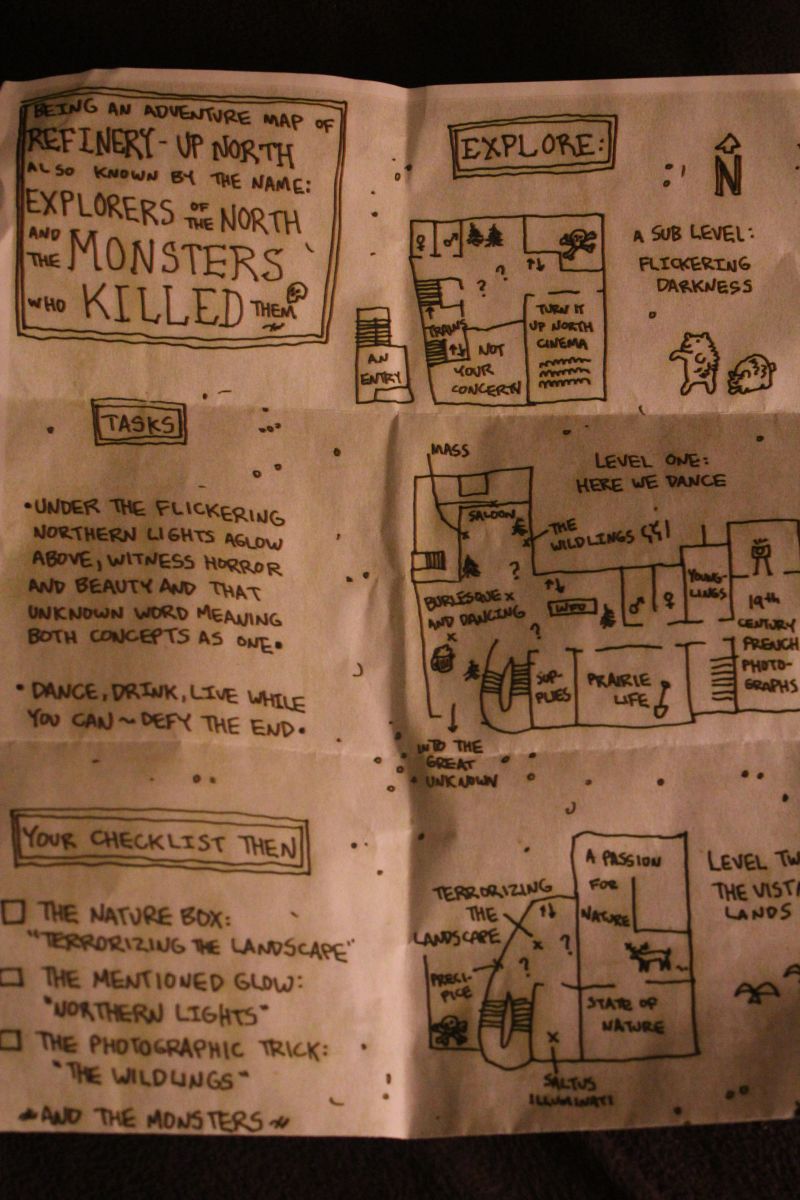 BEING AN ADVENTURE MAP OF
REFINERY - UP NORTH
ALSO KNOWN BY THE NAME:
EXPLORERS OF THE NORTH
AND THE MONSTERS
WHO KILLED THEM
TASKS
• UNDER THE FLICKERING
NORTHERN LIGHTS AGLOW
ABOVE, WITNESS HORROR
AND BEAUTY AND THAT
UNKNOWN WORD MEANING
BOTH CONCEPTS AS ONE.
• DANCE, DRINK, LIVE WHILE
YOU CAN ~ DEFY THE END.
YOUR CHECKLIST THEN
THE NATURE BOX:
"TERRORIZING THE LANDSCAPE"
THE MENTIONED GLOW:
"NORTHERN LIGHTS"
THE PHOTOGRAPHIC TRICK:
"THE WILDLINGS"
~ AND THE MONSTERS ~
EXPLORE:
N
A SUB LEVEL:
FLICKERING
DARKNESS
?
?
TURN IT
UP NORTH
CINEMA
TRAMS
NOT
YOUR
CONCERN
AN
ENTRY
LEVEL ONE:
HERE WE DANCE
MASS
SALOON
THE
WILDLINGS
?
BURLESQUE
AND DANCING
YOUNG-
LINGS
19TH
CENTURY
FRENCH
PHOTO-
GRAPHS
?
SUP-
PLIES
PRAIRIE
LIFE
INTO THE
GREAT
UNKNOWN
LEVEL TW
THE VISTA
LANDS
A PASSION
FOR
NATURE
TERRORIZING
THE
LANDSCAPE
?
?
PRECI-
PICE
STATE OF
NATURE
SALTUS
ILLUMINATI